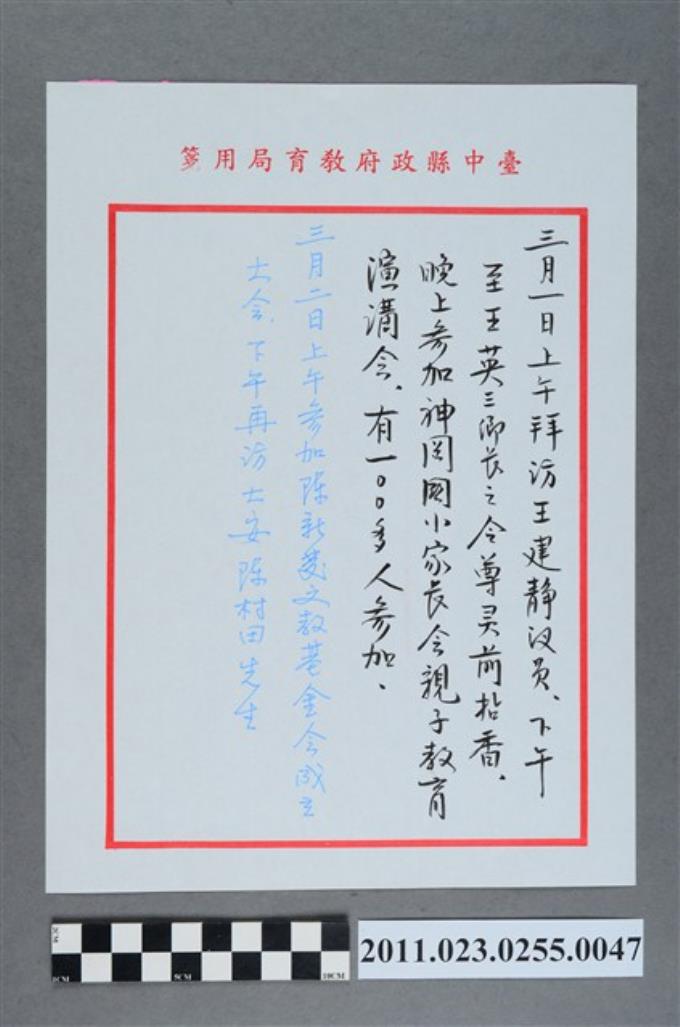 臺中縣政府教育局用箋
三月一日上午拜訪王建靜议員、下午
至王英三鄉長之令尊灵前拈香、
晚上參加神岡國小家長会親子教育
演講会、有一00多人參加、
三月二日上午參加陈新發文教基金会成立
大会、下午再訪大安陈村田先生
1CM
5CM
10CM
2011.023.0255.0047